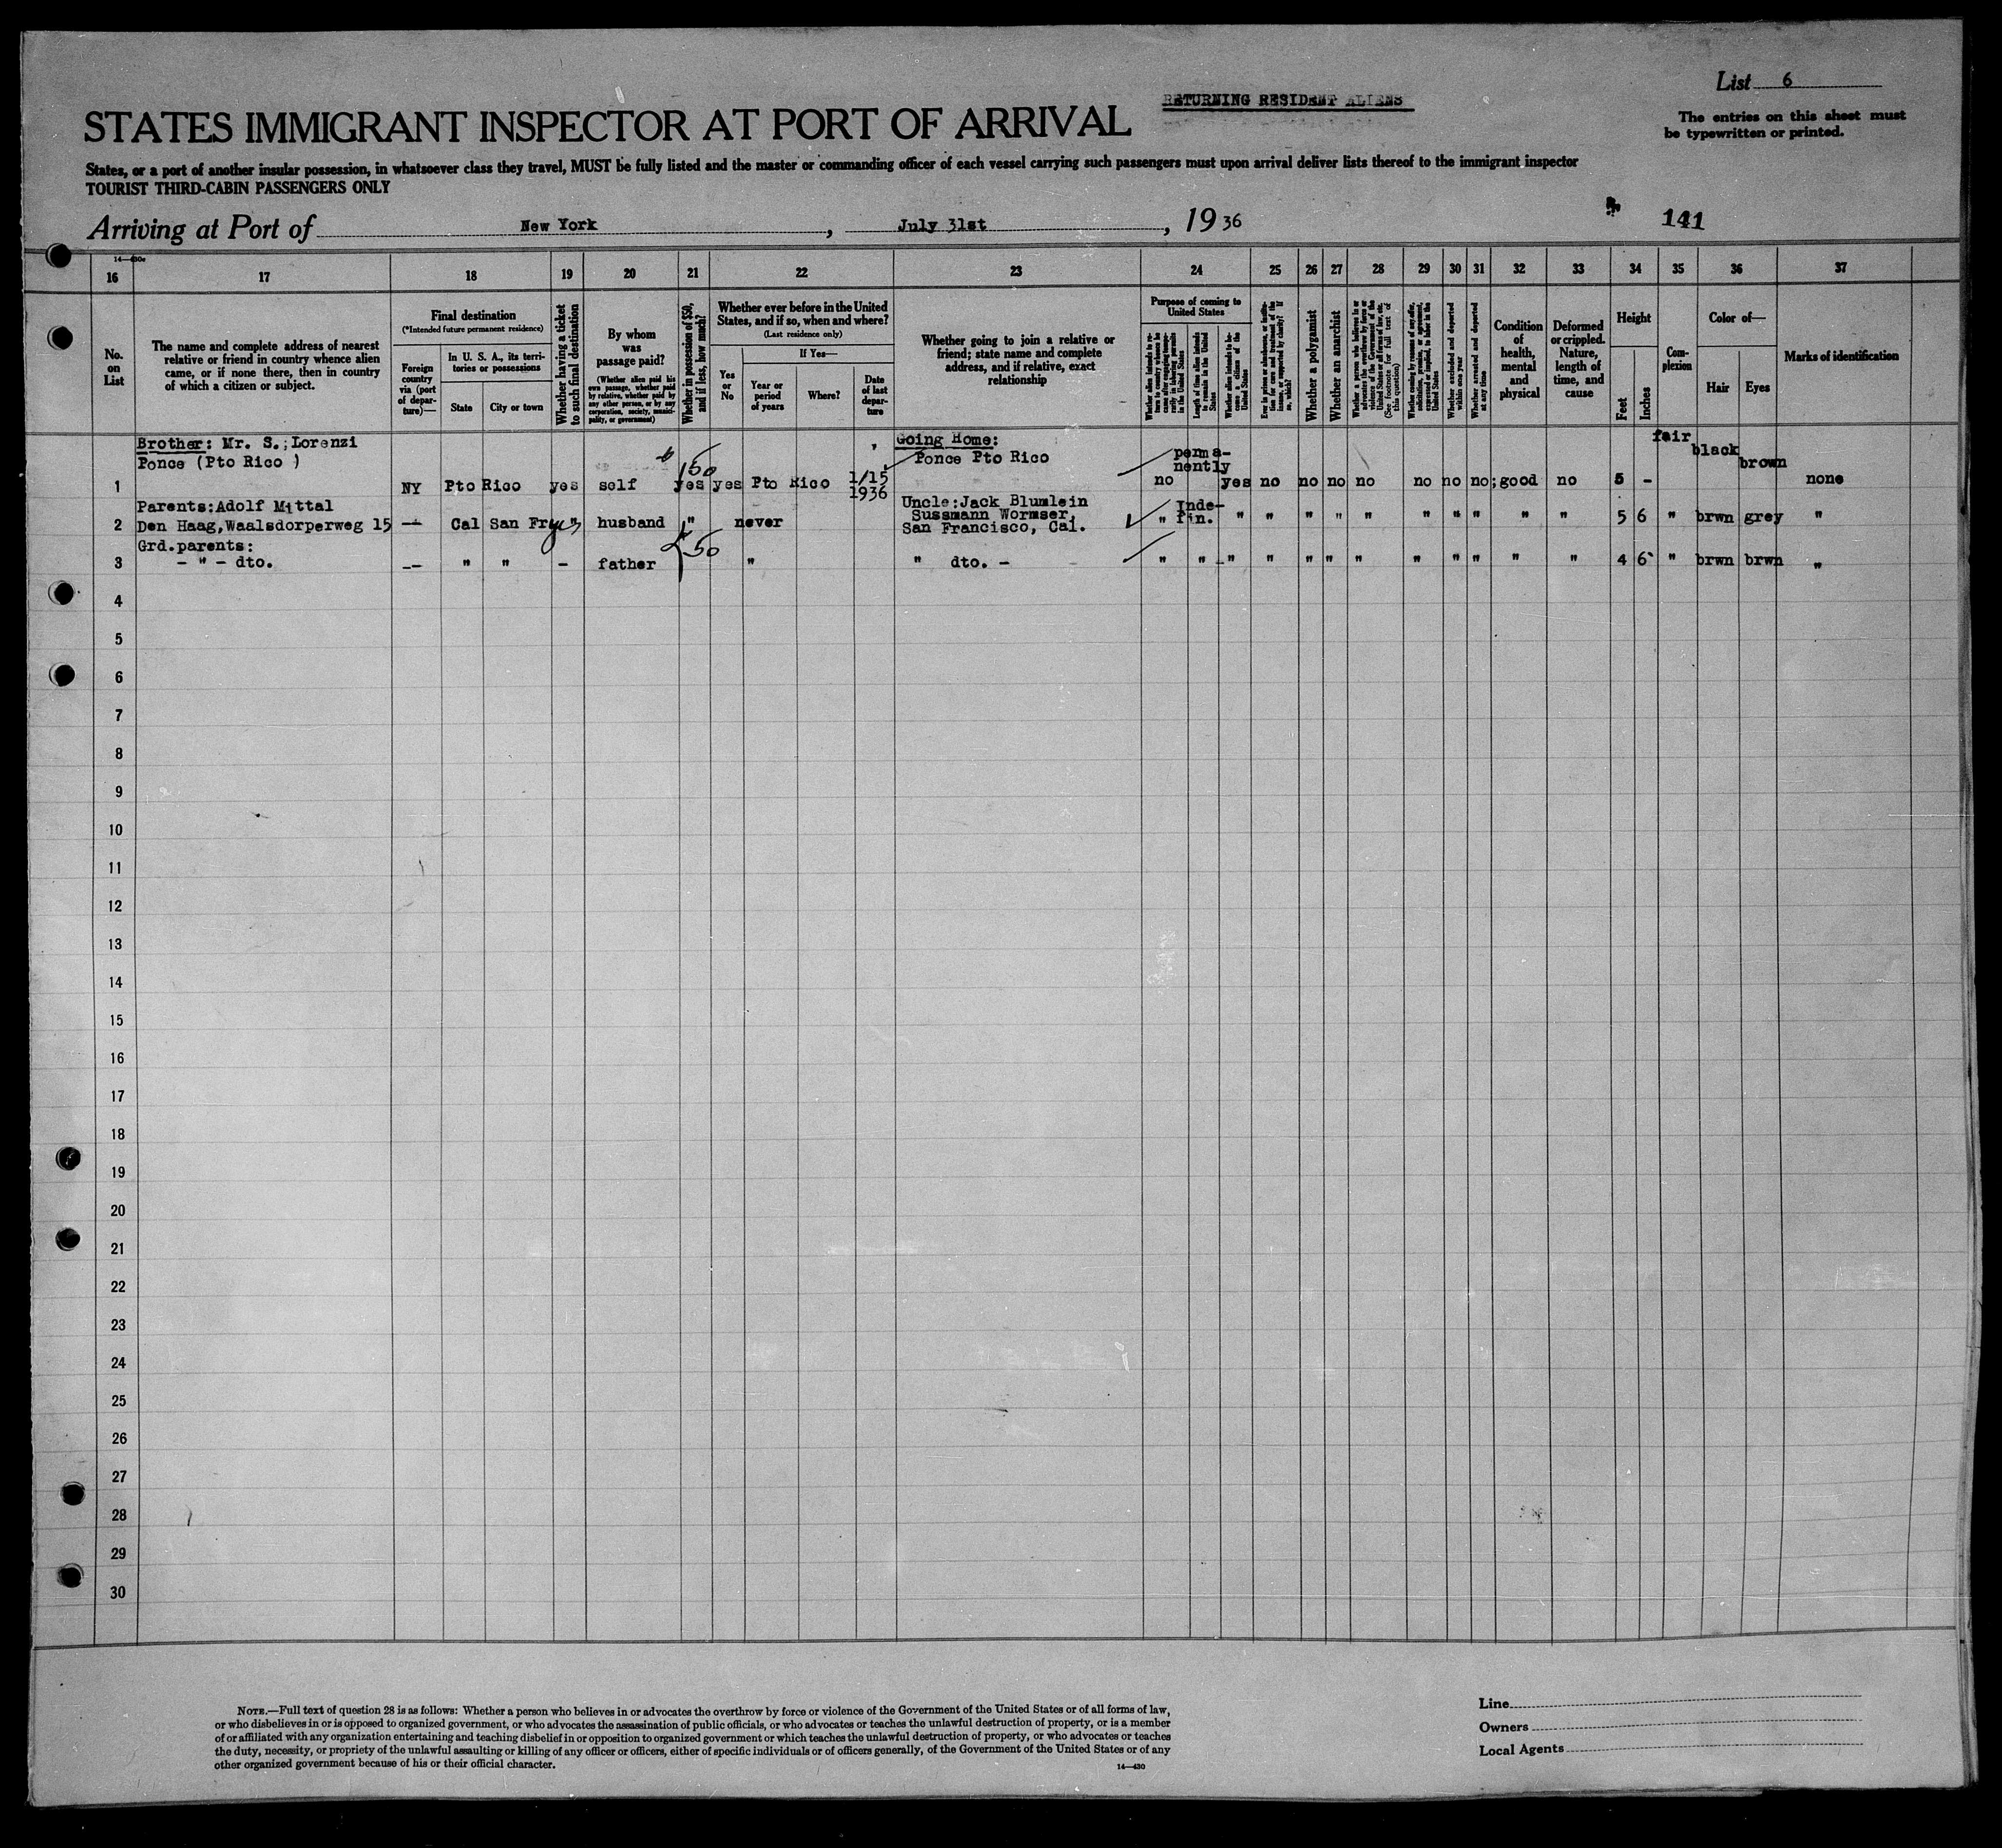 List 6
RETURNING RESIDENT ALIENS
The entries on this sheet must
be typewritten or printed.
STATES IMMIGRANT INSPECTOR AT PORT OF ARRIVAL
States, or a port of another insular possession, in whatsoever class they travel, MUST be fully listed and the master or commanding officer of each vessel carrying such passengers must upon arrival deliver lists thereof to the immigrant inspector
TOURIST THIRD-CABIN PASSENGERS ONLY
Arriving at Port of New York, July 31st, 19 36
141
16 17 18 19 20 21 22 23 24 25 26 27 28 29 30 31 32 33 34 35 36 37
No.
on
List
The name and complete address of nearest
relative or friend in country whence alien
came, or if none there, then in country
of which a citizen or subject.
Final destination
(*Intended future permanent residence)
Foreign
country
via (port
of depar-
ture)—
In U. S. A., its terri-
tories or possessions
State
City or town
Whether having a ticket
to such final destination
By whom
was
passage paid?
(Whether alien paid his
own passage, whether paid
by relative, whether paid by
any other person, or by any
corporation, society, munici-
pality, or government)
Whether in possession of $50,
and if less, how much?
Whether ever before in the United
States, and if so, when and where?
(Last residence only)
Yes
or
No
If Yes—
Year or
period
of years
Where?
Date
of last
depar-
ture
Whether going to join a relative or
friend; state name and complete
address, and if relative, exact
relationship
Purpose of coming to
United States
Whether alien intends to re-
turn to country whence he
came after engaging tempo-
rarily in laboring pursuits
in the United States
Length of time alien intends
to remain in the United
States
Whether alien intends to be-
come a citizen of the
United States
Ever in prison or almshouse, or institu-
tion for care and treatment of the
insane, or supported by charity? If
so, which?
Whether a polygamist
Whether an anarchist
Whether a person who believes in or
advocates the overthrow by force or
violence of the Government of the
United States or all forms of law, etc.
(See footnote for full text of
this question)
Whether coming by reason of any offer,
solicitation, promise, or agreement,
expressed or implied, to labor in the
United States
Whether excluded and deported
within one year
Whether arrested and deported
at any time
Condition
of
health,
mental
and
physical
Deformed
or crippled.
Nature,
length of
time, and
cause
Height
Feet
Inches
Com-
plexion
Color of—
Hair
Eyes
Marks of identification
Brother: Mr. S.;Lorenzi
Ponce (Pto Rico )
1 NY Pto Rico yes self 150 yes yes Pto Rico 1/15
1936
Going Home:
Ponce Pto Rico
no perma-
nently
yes no no no no no no no; good no 5 - fair black brown none
Parents:Adolf Mittal
2 Den Haag,Waalsdorperweg 15 — Cal San Fr yes " husband " never
Uncle:Jack Blumlein
Sussmann Wormser,
San Francisco, Cal.
" Inde-
fin.
" " " " " " " " " " 5 6 " brwn grey "
Grd.parents:
3 - " - dto. -- " " - father 50 " " dto. -
" " - " " " " " " " " " " 4 6 " brwn brwn "
4
5
6
7
8
9
10
11
12
13
14
15
16
17
18
19
20
21
22
23
24
25
26
27
28
29
30
NOTE.—Full text of question 28 is as follows: Whether a person who believes in or advocates the overthrow by force or violence of the Government of the United States or of all forms of law,
or who disbelieves in or is opposed to organized government, or who advocates the assassination of public officials, or who advocates or teaches the unlawful destruction of property, or is a member
of or affiliated with any organization entertaining and teaching disbelief in or opposition to organized government or which teaches the unlawful destruction of property, or who advocates or teaches
the duty, necessity, or propriety of the unlawful assaulting or killing of any officer or officers, either of specific individuals or of officers generally, of the Government of the United States or of any
other organized government because of his or their official character.
14—430
Line
Owners
Local Agents